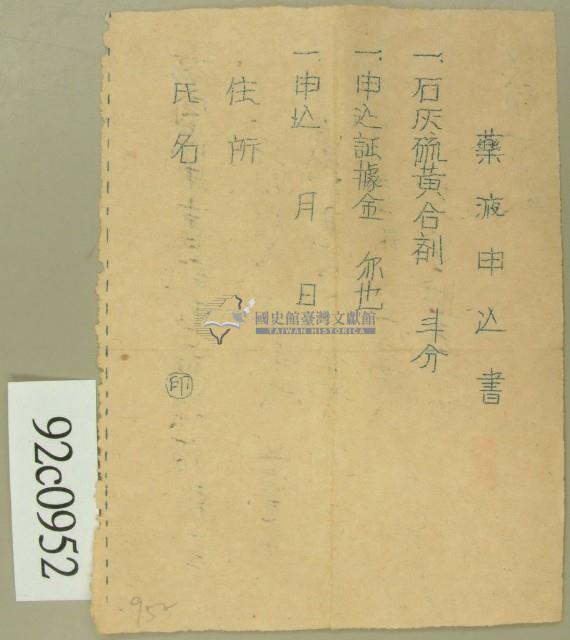 藥液申込書
一、石灰硫黃合剤　斗分
一、申込証據金　尓也
一、申込　月　日
住所
氏名　印
國史館臺灣文獻館
TAIWAN HISTORICA
92c0952
952